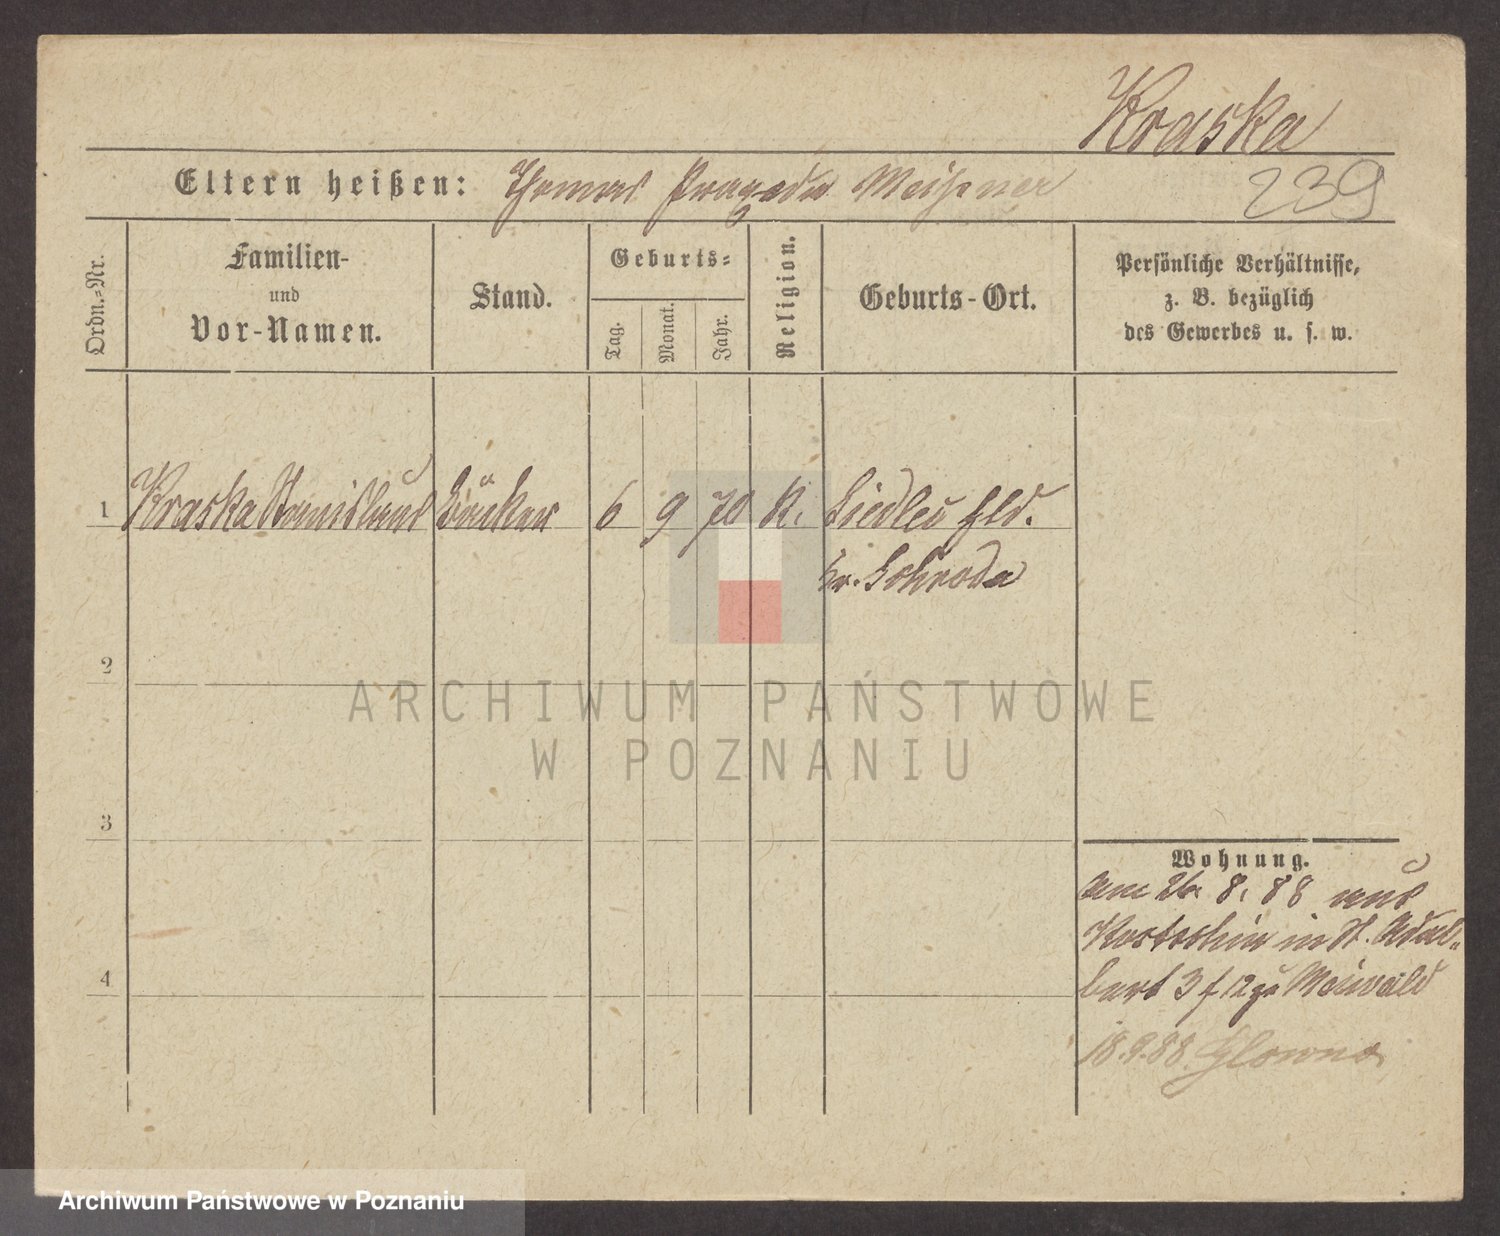 Kraska
Eltern heißen: Thomas Praxeda Meisner
239
Ordn.-Nr.
Familien-
und
Vor-Namen.
Stand.
Geburts-
Tag.
Monat.
Jahr.
Religion.
Geburts-Ort.
Persönliche Verhältnisse,
z. B. bezüglich
des Gewerbes u. s. w.
1 Kraska Stanislaus Bäcker 6 9 70 K. Siedlec Hld.
Kr. Schroda
2
ARCHIWUM PAŃSTWOWE
W POZNANIU
3
Wohnung.
am 26. 8. 88 aus
Kostschin in St. Adal-
bert 3 f 12 zu Maiwald
4
18.9.88. Glowno
Archiwum Państwowe w Poznaniu